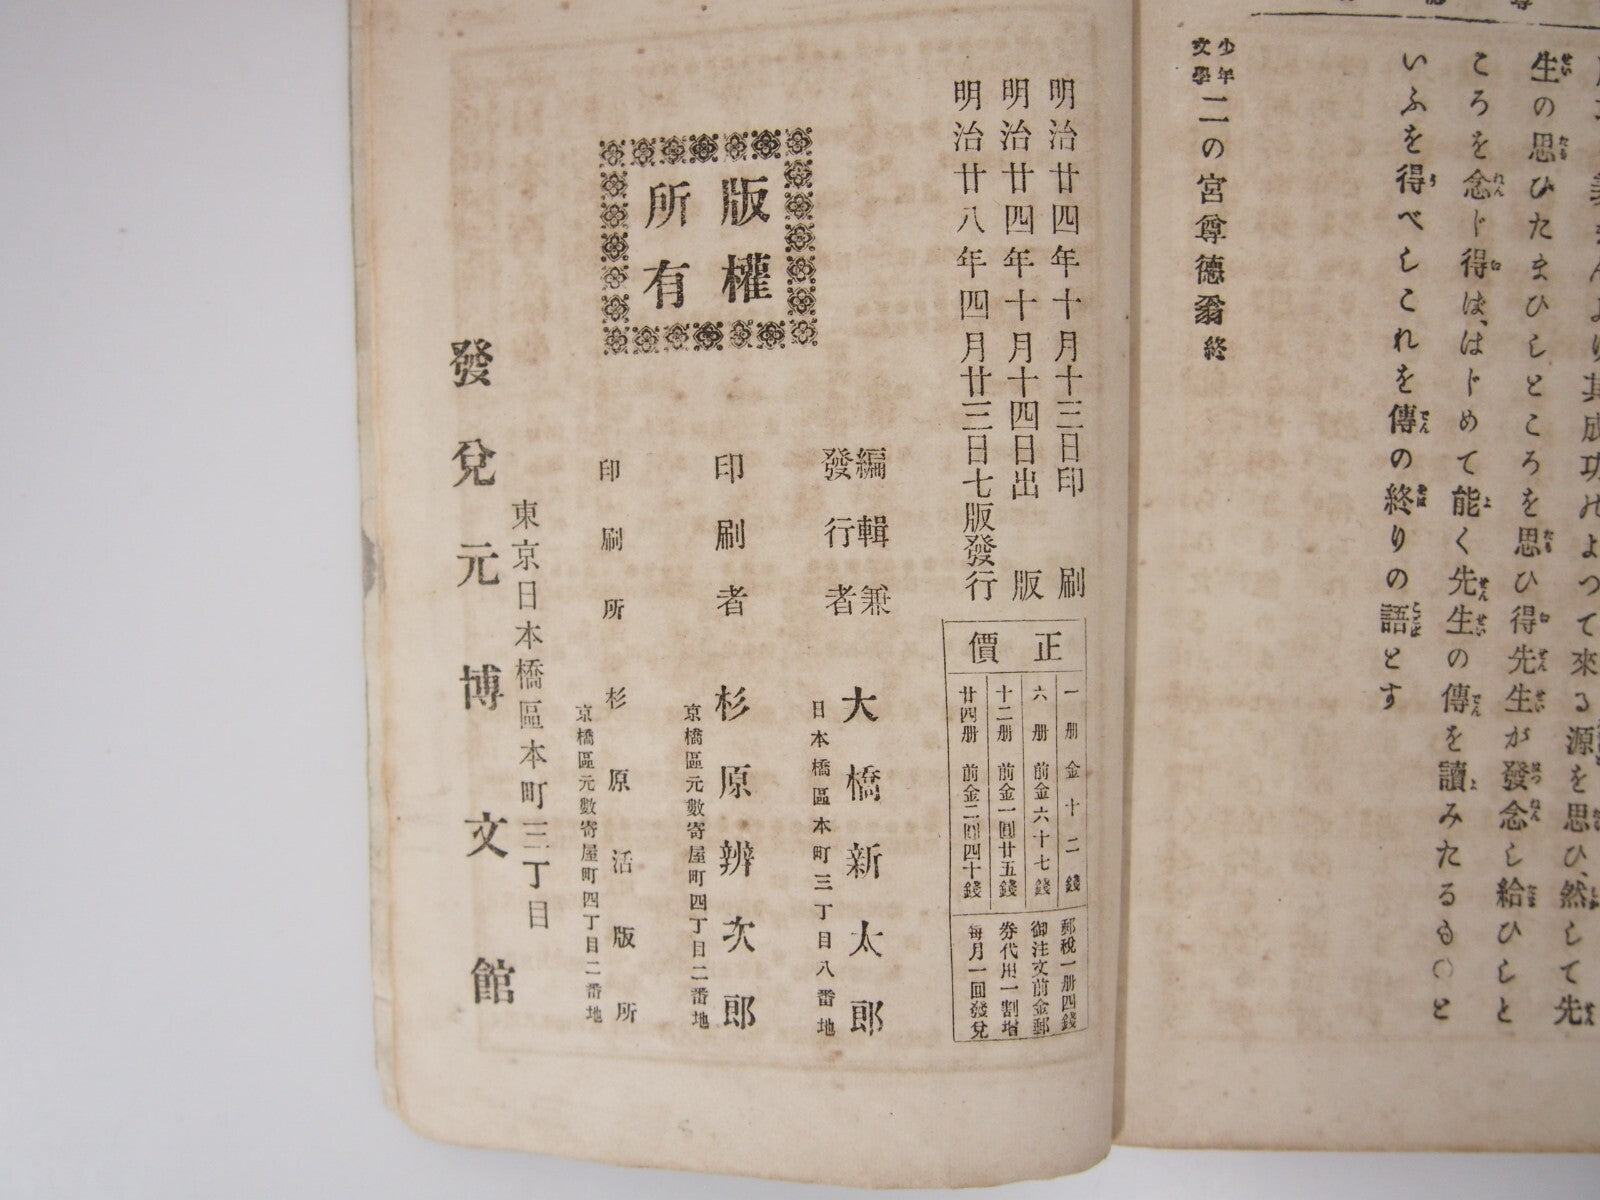 生の思ひたまひしところを思ひ得先生が發念し給ひしと
ころを念じ得は、はじめて能く先生の傳を讀みたるもの○と
いふを得べしこれを傳の終りの語とす
少年文學 二の宮尊德翁 終
明治廿四年十月十三日印刷
明治廿四年十月十四日出版
明治廿八年四月廿三日七版發行
正價
一册 金十二錢
六册 前金六十七錢
十二册 前金一圓廿五錢
廿四册 前金二圓四十錢
郵稅一册四錢
御注文前金郵
券代用一割增
每月一回發兌
版權
所有
編輯兼
發行者
大橋新太郎
日本橋區本町三丁目八番地
印刷者
杉原辨次郎
京橋區元數寄屋町四丁目二番地
印刷所
杉原活版所
京橋區元數寄屋町四丁目二番地
東京日本橋區本町三丁目
發兌元 博文館